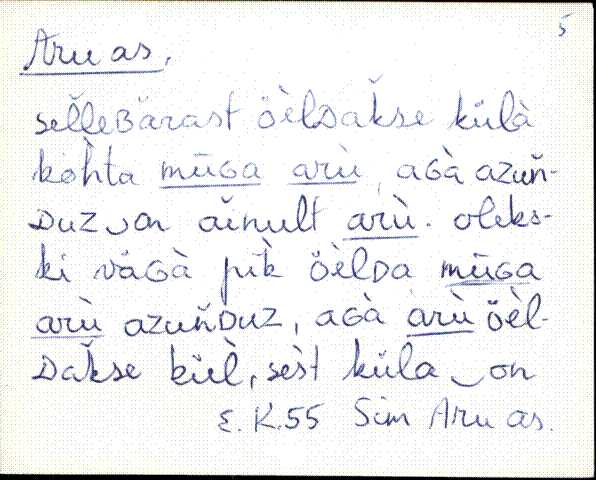 5
Aru as.
se͔l̆l̆eBärast öèlDak̆se külà
kòh̀ta mūGa arù, aGà azun̆-
Duz‿on ain̆ult arù. oleks-
ki väGà pik̀ öèlDa mūGa
arù azun̆Duz, aGà arù öèl-
Dak̆se küèl, ses̀t küla‿on
E.K.55 Sim Aru as.